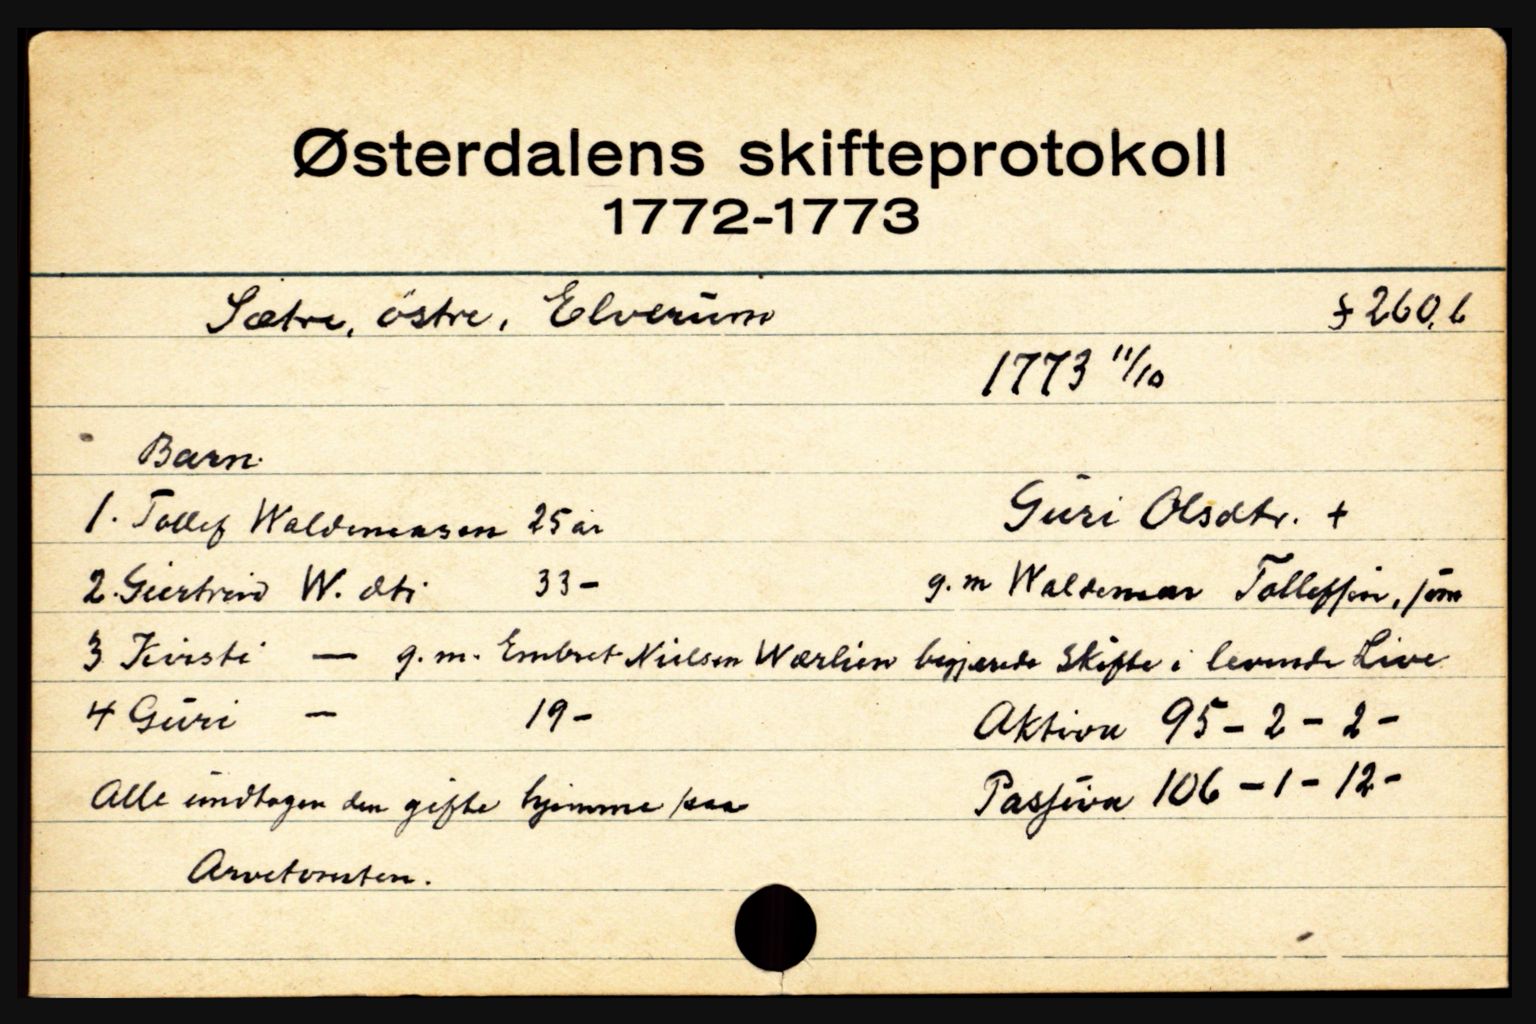 Østerdalens skifteprotokoll
1772-1773
Sætre, östre, Elverūm
§ 260, b
1773 11/10
Barn.
1. Tollef Waldemarsen 25 år
2. Giertrud W. dtr 33-
3 Kirsti — g. m. Embret Nielsen Wærlien
4 Gūri — 19-
Alle ūndtagen den gifte hjemme paa
Arvetomten.
Gūri Olsdtr. +
g. m Waldemar Tollefsøn, som
begjærede Skifte i levende Live
Aktiva 95 - 2 - 2 -
Passiva 106 - 1 - 12 -